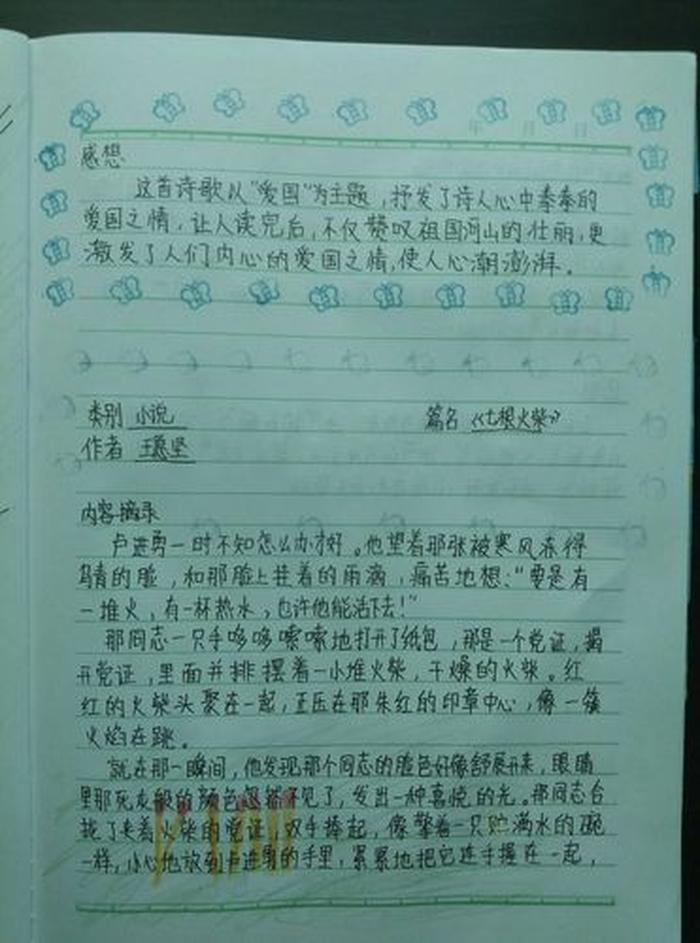 年 月 日
感想
这首诗歌以“爱国”为主题，抒发了诗人心中拳拳的
爱国之情，让人读完后，不仅赞叹祖国河山的壮丽，更
激发了人们内心的爱国之情，使人心潮澎湃。
类别 小说 篇名 《七根火柴》
作者 王愿坚
内容摘录
卢进勇一时不知怎么办才好。他望着那张被寒风冻得
青的脸，和那脸上挂着的雨滴，痛苦地想：“要是有
一堆火，有一杯热水，也许他能活下去！”
那同志一只手哆哆嗦嗦地打开了纸包，那是一个党证，揭
开党证，里面并排摆着一小堆火柴，干燥的火柴。红
红的火柴头聚在一起，正压在那朱红的印章中心，像一簇
火焰在跳。
就在那一瞬间，他发现那个同志的脸色好像舒展开来，眼睛
里那死灰般的颜色忽然不见了，发出一种喜悦的光。那同志合
拢了夹着火柴的党证，双手捧起，像擎着一只贮满水的碗
一样，小心地放到卢进勇的手里，紧紧地把它连手握在一起，